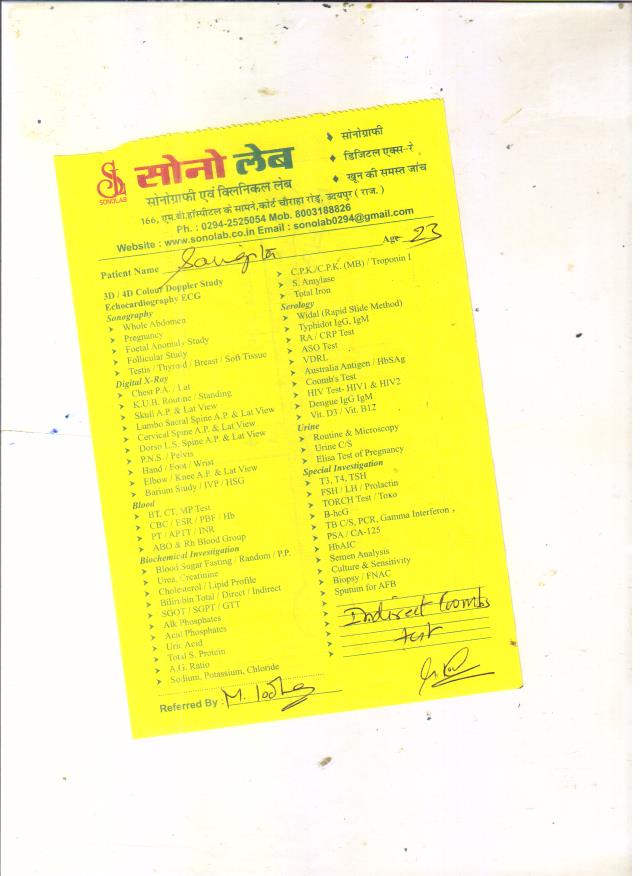 SL SONOLAB
सोनो लेब
सोनोग्राफी एवं क्लिनिकल लेब
♦ सोनोग्राफी
♦ डिजिटल एक्स-रे
♦ खून की समस्त जांच
166, एम.बी.हॉस्पीटल के सामने,कोर्ट चौराहा रोड़, उदयपुर ( राज. )
Ph. : 0294-2525054 Mob. 8003188826
Website : www.sonolab.co.in Email : sonolab0294@gmail.com
Patient Name Sangita Age 23
3D / 4D Colour Doppler Study
Echocardiography ECG
Sonography
➤ Whole Abdomen
➤ Pregnancy
➤ Foetal Anomaly Study
➤ Follicular Study
➤ Testis / Thyroid / Breast / Soft Tissue
Digital X-Ray
➤ Chest P.A. / Lat
➤ K.U.B. Routine / Standing
➤ Skull A.P. & Lat View
➤ Lumbo Sacral Spine A.P. & Lat View
➤ Cervical Spine A.P. & Lat View
➤ Dorso L.S. Spine A.P. & Lat View
➤ P.N.S. / Pelvis
➤ Hand / Foot / Wrist
➤ Elbow / Knee A.P. & Lat View
➤ Barium Study / IVP / HSG
Blood
➤ BT, CT, MP Test
➤ CBC / ESR / PBF / Hb
➤ PT / APTT / INR
➤ ABO & Rh Blood Group
Biochemical Investigation
➤ Blood Sugar Fasting / Random / P.P.
➤ Urea, Creatinine
➤ Cholesterol / Lipid Profile
➤ Bilirubin Total / Direct / Indirect
➤ SGOT / SGPT / GTT
➤ Alk Phosphates
➤ Acid Phosphates
➤ Uric Acid
➤ Total S. Protein
➤ A.G. Ratio
➤ Sodium, Potassium, Chloride
➤ C.P.K./C.P.K. (MB) / Troponin I
➤ S. Amylase
➤ Total Iron
Serology
➤ Widal (Rapid Slide Method)
➤ Typhidot IgG, IgM
➤ RA / CRP Test
➤ ASO Test
➤ VDRL
➤ Australia Antigen / HbSAg
➤ Coomb's Test
➤ HIV Test- HIV1 & HIV2
➤ Dengue IgG IgM
➤ Vit. D3 / Vit. B12
Urine
➤ Routine & Microscopy
➤ Urine C/S
➤ Elisa Test of Pregnancy
Special Investigation
➤ T3, T4, TSH
➤ FSH / LH / Prolactin
➤ TORCH Test / Toxo
➤ B-hcG
➤ TB C/S, PCR, Gamma Interferon ,
➤ PSA / CA-125
➤ HbAIC
➤ Semen Analysis
➤ Culture & Sensitivity
➤ Biopsy / FNAC
➤ Sputum for AFB
➤ Indirect Coombs
➤ test
Referred By : M.